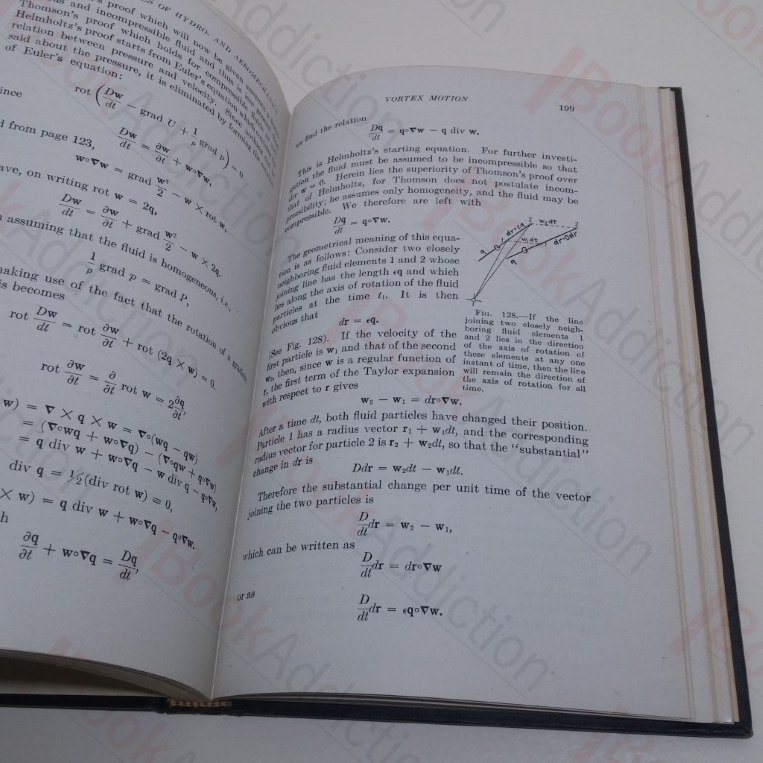 N OF HYDRO- AND AEROMECHA
's proof which will now be given
and incompressible fluid and thus
Thomson's proof which holds for compressible
Helmholtz's proof starts from Euler's equation which
relation between pressure and velocity. Since
said about the pressure, it is eliminated by forming the
of Euler's equation:
rot (Dw/dt − grad U + 1/ρ grad p) = 0.
ince
Dw/dt = ∂w/∂t + w∘∇w,
d from page 123,
w∘∇w = grad w²/2 − w × rot w,
ave, on writing rot w = 2q,
Dw/dt = ∂w/∂t + grad w²/2 − w × 2q.
assuming that the fluid is homogeneous, i.e.,
1/ρ grad p = grad P,
aking use of the fact that the rotation of a gradient
is becomes
rot Dw/dt = rot ∂w/∂t + rot (2q × w) = 0.
rot ∂w/∂t = ∂/∂t rot w = 2 ∂q/∂t,
w) = ∇ × q × w = ∇∘(wq − qw)
= (∇∘wq + w∘∇q) − (∇∘qw + q∘∇w)
= q div w + w∘∇q − w div q − q∘∇w,
div q = ½(div rot w) = 0,
× w) = q div w + w∘∇q − q∘∇w.
h
∂q/∂t + w∘∇q = Dq/dt,
VORTEX MOTION 199
we find the relation
Dq/dt = q∘∇w − q div w.
This is Helmholtz's starting equation. For further investi-
gation the fluid must be assumed to be incompressible so that
div w = 0. Herein lies the superiority of Thomson's proof over
that of Helmholtz, for Thomson does not postulate incom-
pressibility; he assumes only homogeneity, and the fluid may be
compressible. We therefore are left with
Dq/dt = q∘∇w.
The geometrical meaning of this equa-
tion is as follows: Consider two closely
neighboring fluid elements 1 and 2 whose
joining line has the length εq and which
lies along the axis of rotation of the fluid
particles at the time t₁. It is then
obvious that
dr = εq.
(See Fig. 128). If the velocity of the
first particle is w₁ and that of the second
w₂, then, since w is a regular function of
r, the first term of the Taylor expansion
with respect to r gives
w₂ − w₁ = dr∘∇w.
FIG. 128.—If the line
joining two closely neigh-
boring fluid elements 1
and 2 lies in the direction
of the axis of rotation of
these elements at any one
instant of time, then the line
will remain the direction of
the axis of rotation for all
time.
After a time dt, both fluid particles have changed their position.
Particle 1 has a radius vector r₁ + w₁dt, and the corresponding
radius vector for particle 2 is r₂ + w₂dt, so that the "substantial"
change in dr is
Ddr = w₂dt − w₁dt.
Therefore the substantial change per unit time of the vector
joining the two particles is
D/dt dr = w₂ − w₁,
which can be written as
D/dt dr = dr∘∇w
or as
D/dt dr = εq∘∇w.
BookAddiction